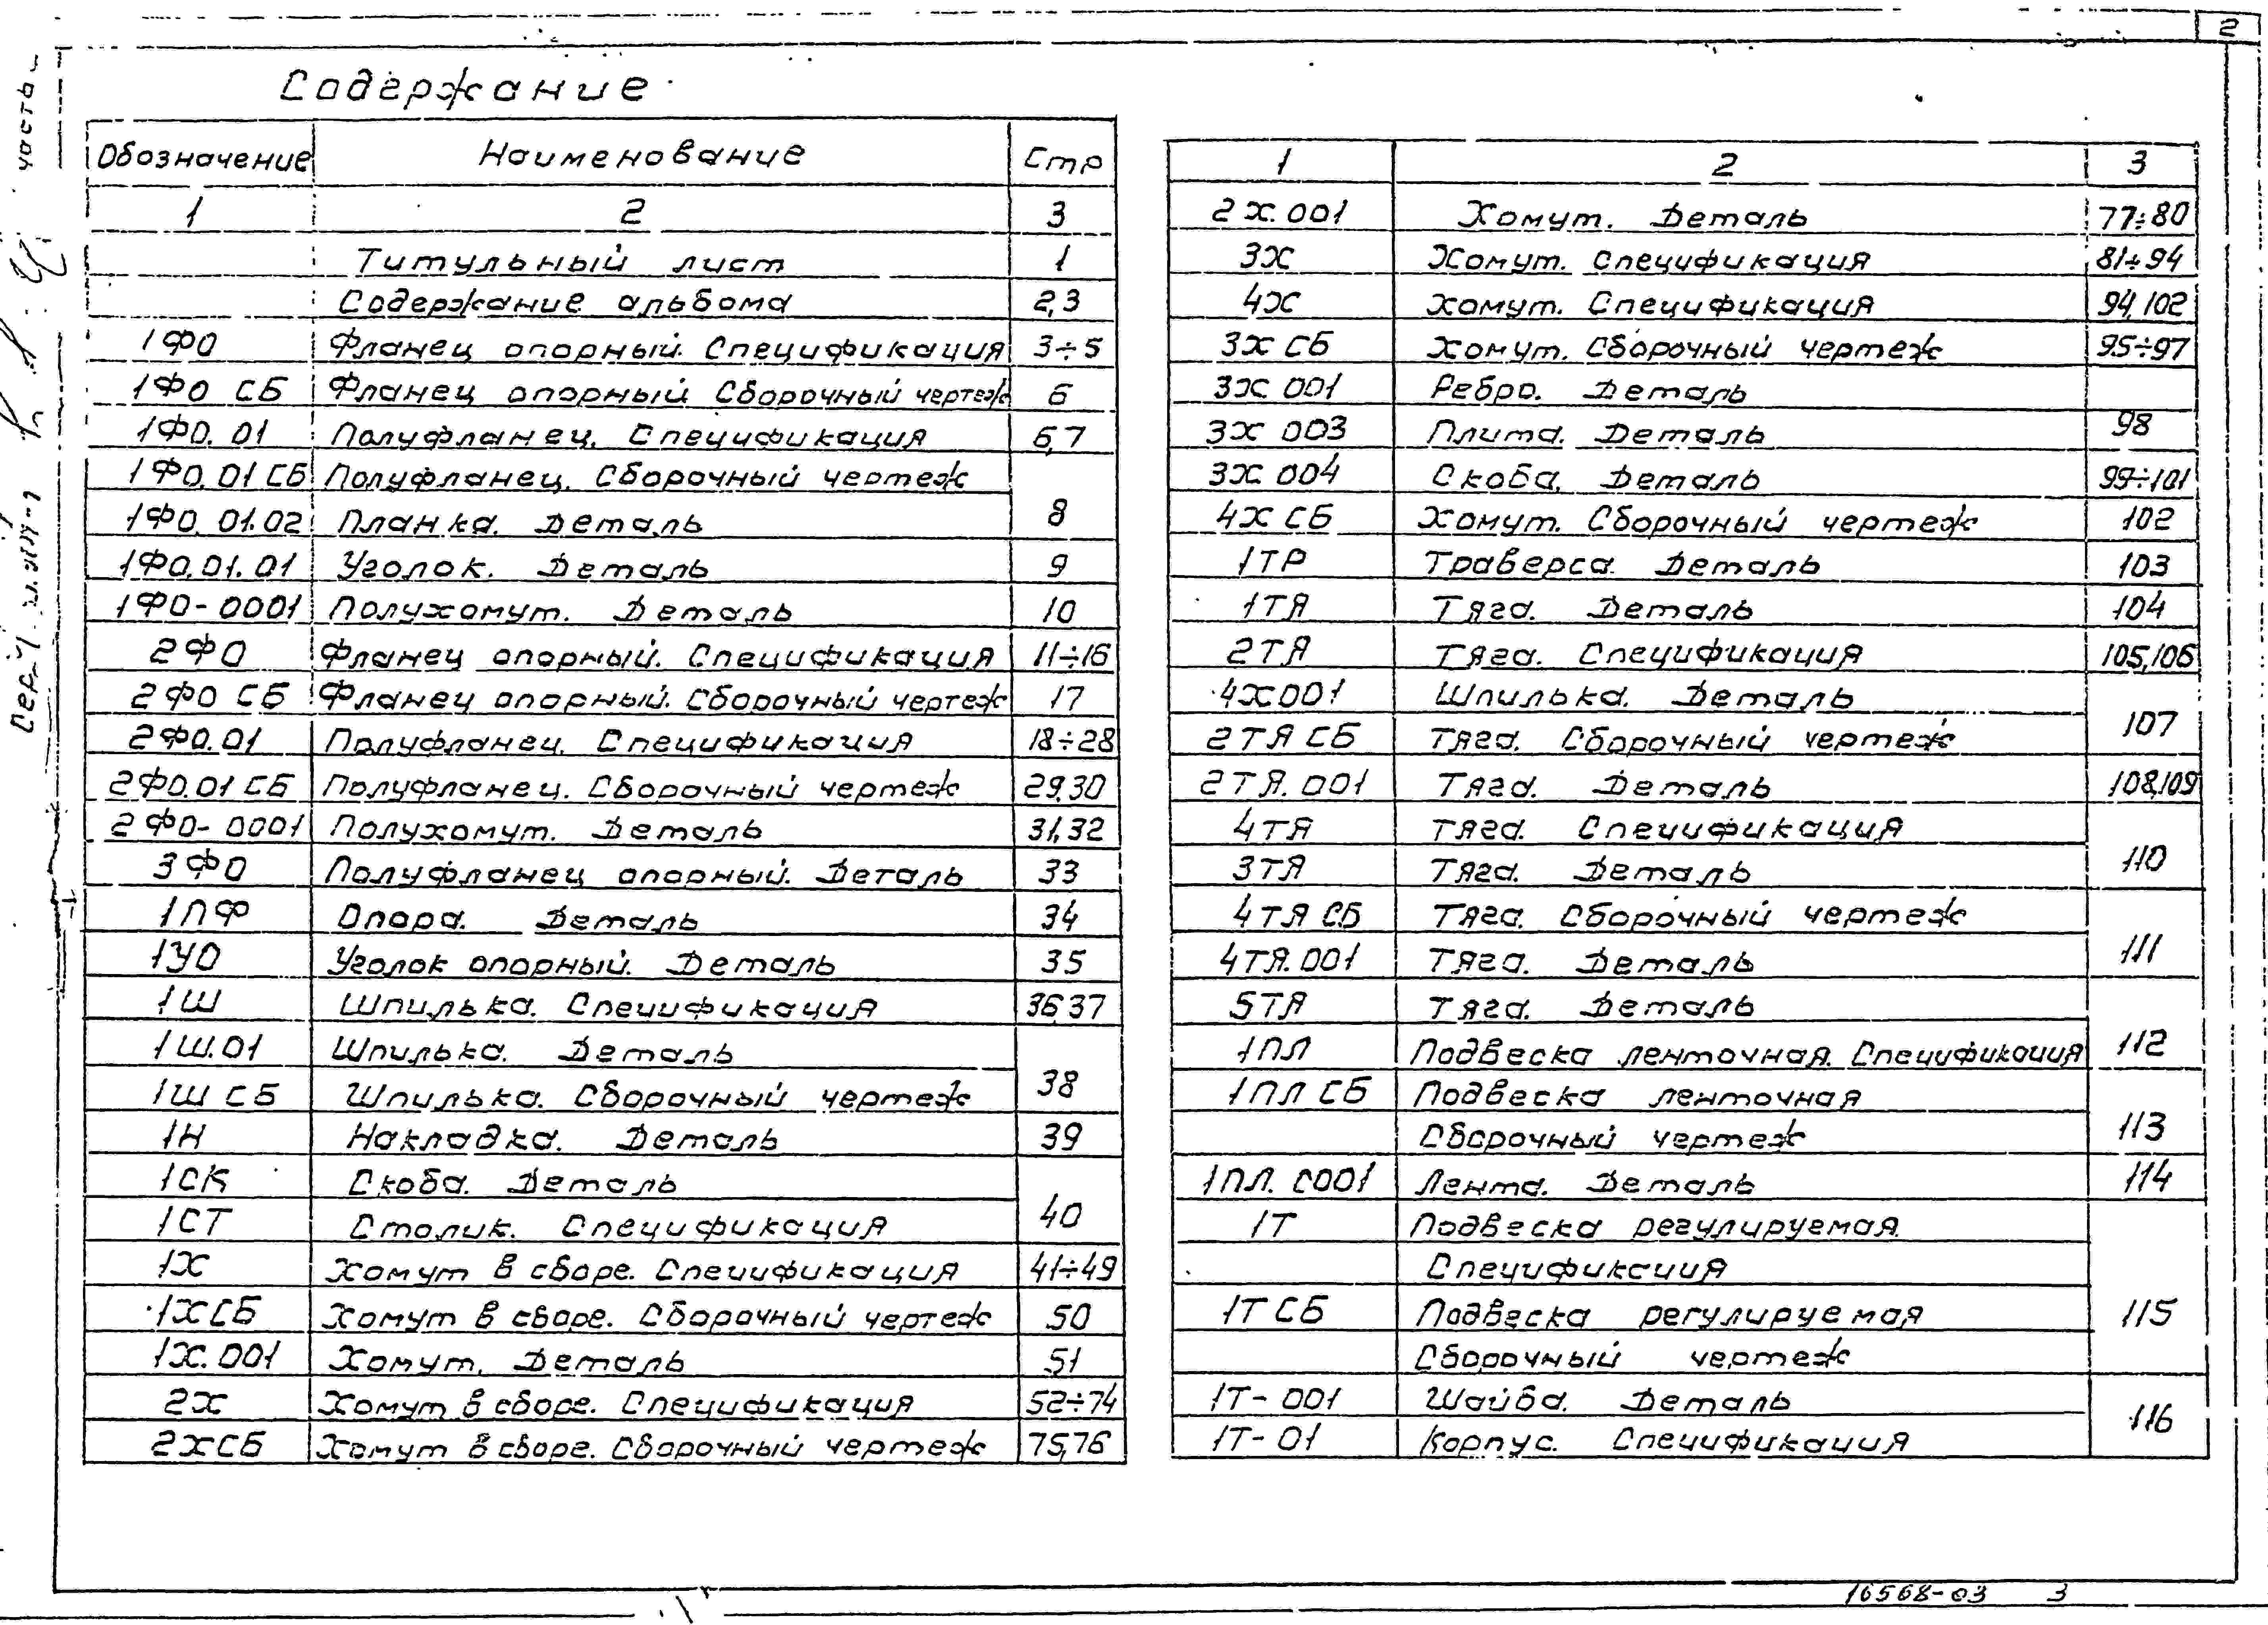 2
Содержание
Обозначение Наименование Стр
1 2 3
Титульный лист 1
Содержание альбома 2,3
1ФО Фланец опорный. Спецификация 3÷5
1ФО СБ Фланец опорный Сборочный чертеж 6
1ФО. 01 Полуфланец. Спецификация 6,7
1ФО. 01 СБ Полуфланец. Сборочный чертеж
1ФО. 01.02 Планка. Деталь 8
1ФО.01.01 Уголок. Деталь 9
1ФО-0001 Полухомут. Деталь 10
2ФО Фланец опорный. Спецификация 11÷16
2ФО СБ Фланец опорный. Сборочный чертеж 17
2ФО.01 Полуфланец. Спецификация 18÷28
2ФО.01 СБ Полуфланец. Сборочный чертеж 29,30
2ФО-0001 Полухомут. Деталь 31,32
3ФО Полуфланец опорный. Деталь 33
1ПФ Опора. Деталь 34
1УО Уголок опорный. Деталь 35
1Ш Шпилька. Спецификация 36,37
1Ш.01 Шпилька. Деталь
1Ш СБ Шпилька. Сборочный чертеж 38
1Н Накладка. Деталь 39
1СК Скоба. Деталь
1СТ Столик. Спецификация 40
1Х Хомут в сборе. Спецификация 41÷49
1ХСБ Хомут в сборе. Сборочный чертеж 50
1Х.001 Хомут. Деталь 51
2Х Хомут в сборе. Спецификация 52÷74
2ХСБ Хомут в сборе. Сборочный чертеж 75,76
1 2 3
2Х.001 Хомут. Деталь 77÷80
3Х Хомут. Спецификация 81÷94
4Х Хомут. Спецификация 94,102
3Х СБ Хомут. Сборочный чертеж 95÷97
3Х 001 Ребро. Деталь
3Х 003 Плита. Деталь 98
3Х 004 Скоба. Деталь 99÷101
4Х СБ Хомут. Сборочный чертеж 102
1ТР Траверса Деталь 103
1ТЯ Тяга. Деталь 104
2ТЯ Тяга. Спецификация 105,106
4Х001 Шпилька. Деталь
2ТЯ СБ Тяга. Сборочный чертеж 107
2ТЯ.001 Тяга. Деталь 108,109
4ТЯ Тяга. Спецификация
3ТЯ Тяга. Деталь 110
4ТЯ СБ Тяга. Сборочный чертеж
4ТЯ.001 Тяга. Деталь 111
5ТЯ Тяга. Деталь
1ПЛ Подвеска ленточная. Спецификация 112
1ПЛ СБ Подвеска ленточная
Сборочный чертеж 113
1ПЛ. 0001 Лента. Деталь 114
1Т Подвеска регулируемая.
Спецификация
1Т СБ Подвеска регулируемая 115
Сборочный чертеж
1Т-001 Шайба. Деталь
1Т-01 Корпус. Спецификация 116
16568-03 3
часть